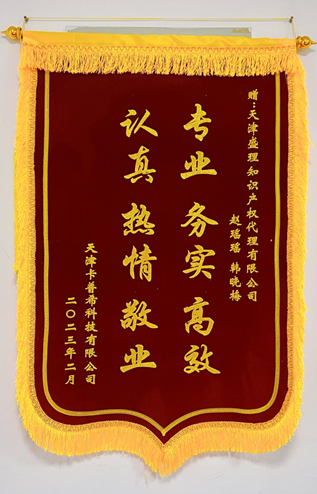 赠：天津盛理知识产权代理有限公司
赵瑶瑶 韩晓椿
专业 务实 高效
认真 热情 敬业
天津卡普希科技有限公司
二〇二三年二月